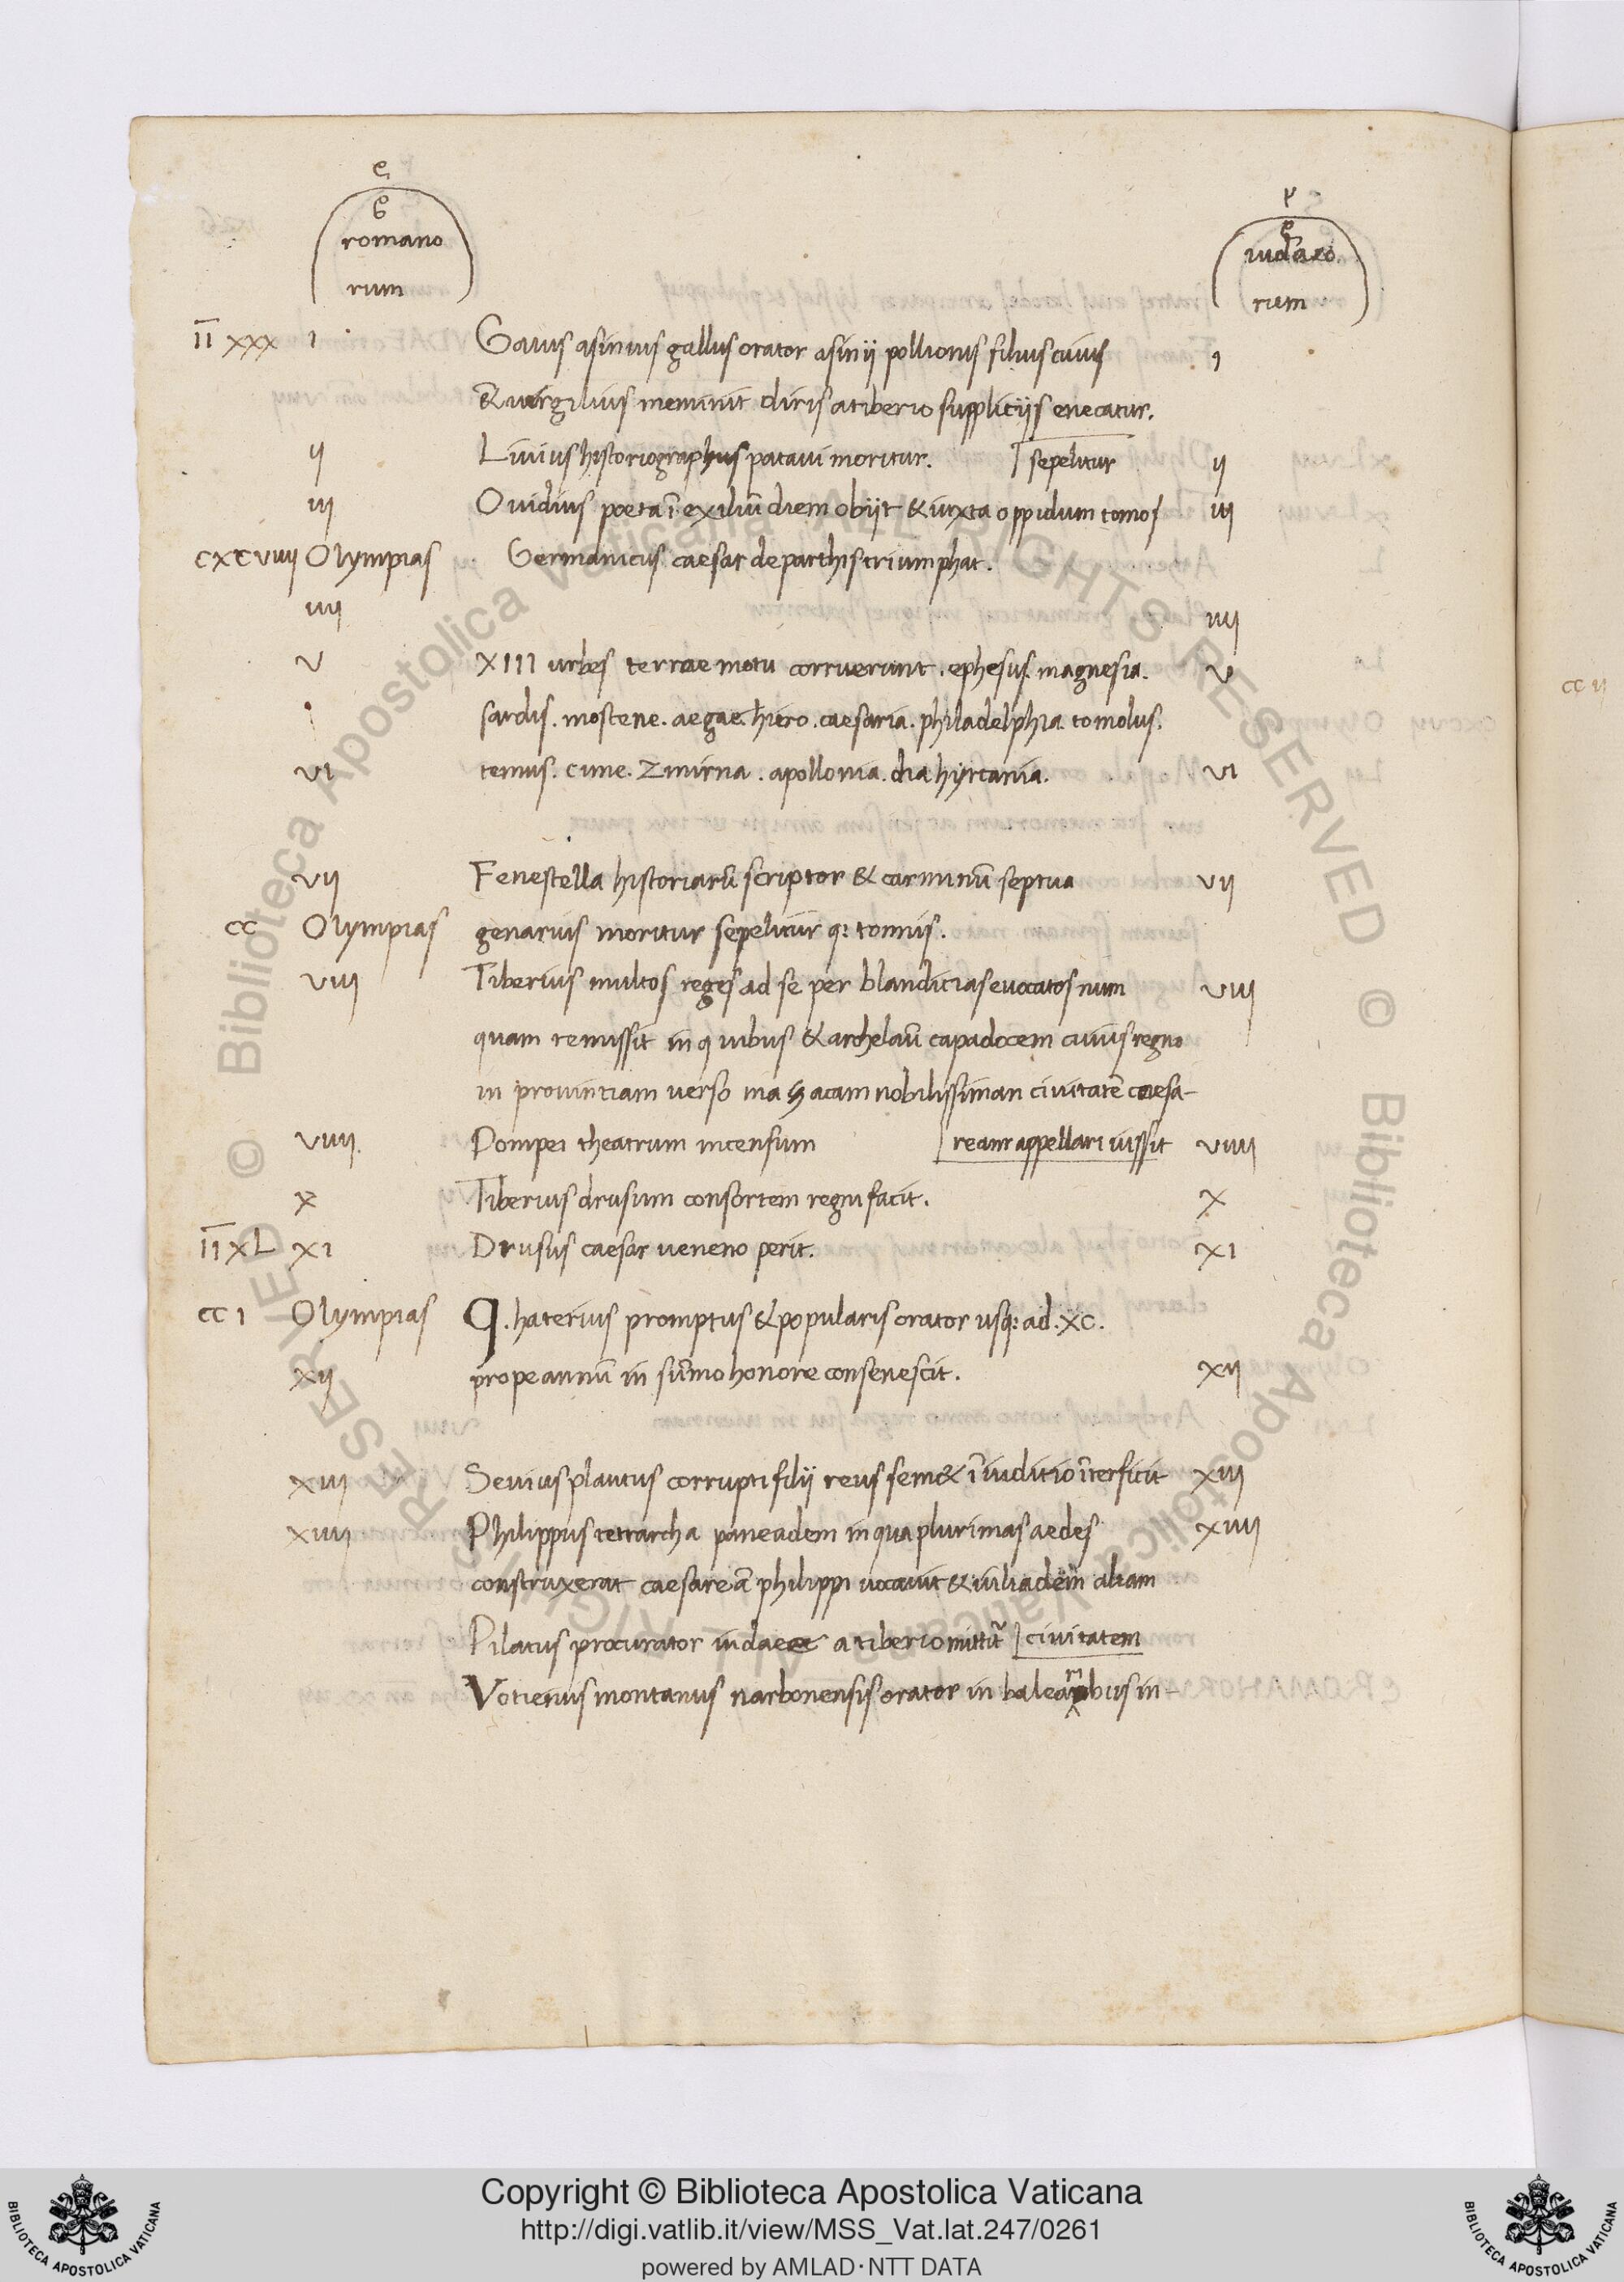 romano
rum
iudaeo
rum
II xxx I Gaius asinius gallus orator asinij pollionis filius cuius I
& uirgilius meminit diris a tiberio supplicijs enecatur.
ij Liuius historiographus pataui moritur. sepelitur ij
iij Ouidius poeta ī exiliū diem obijt & iuxta oppidum tomos iij
cxcviiij Olympias Germanicus caesar de parthis triumphat.
iiij iiij
v XIII urbes terrae motu corruerunt. ephesus. magnesia. v
sardis. mostene. aegae. hiero. caesaria. philadelphia. tomolus.
vi temus. cime. Zmirna. apollonia. dia hyrcania. vi
vij Fenestella historiarū scriptor & carminū septua vij
cc Olympias genarius moritur sepelitur q: tomis.
viij Tiberius multos reges ad se per blandicias euocatos num viij
quam remissit in quibus & archelaū capadocem cuius regno
in prouintiam verso mazacam nobilissiman ciuitatē caesa-
viiij Pompei theatrum incensum ream appellari iussit viiij
x Tiberius drusum consortem regni facit. x
II xL xi Drusus caesar ueneno perit. xi
cc i Olympias Q. haterius promptus & popularis orator usq: ad. xc.
xij prope annū in sūmo honore consenescit. xij
xiij Seuius plautus corrupti filij reus sem& ī iuditio īterficit xiij
xiiij Philippus tetrarcha paneadem in qua plurimas aedes xiiij
construxerat caesareā philippi uocauit & iuliadem aliam
Pilatus procurator iudaeae a tiberio mittit̄ ciuitatem
Votienus montanus narbonensis orator in balearibus in-
cc ij
Copyright © Biblioteca Apostolica Vaticana
http://digi.vatlib.it/view/MSS_Vat.lat.247/0261
powered by AMLAD·NTT DATA
BIBLIOTECA APOSTOLICA VATICANA
BIBLIOTECA APOSTOLICA VATICANA
© Biblioteca Apostolica Vaticana ALL RIGHTS RESERVED
© Biblioteca Apostolica Vaticana ALL RIGHTS RESERVED